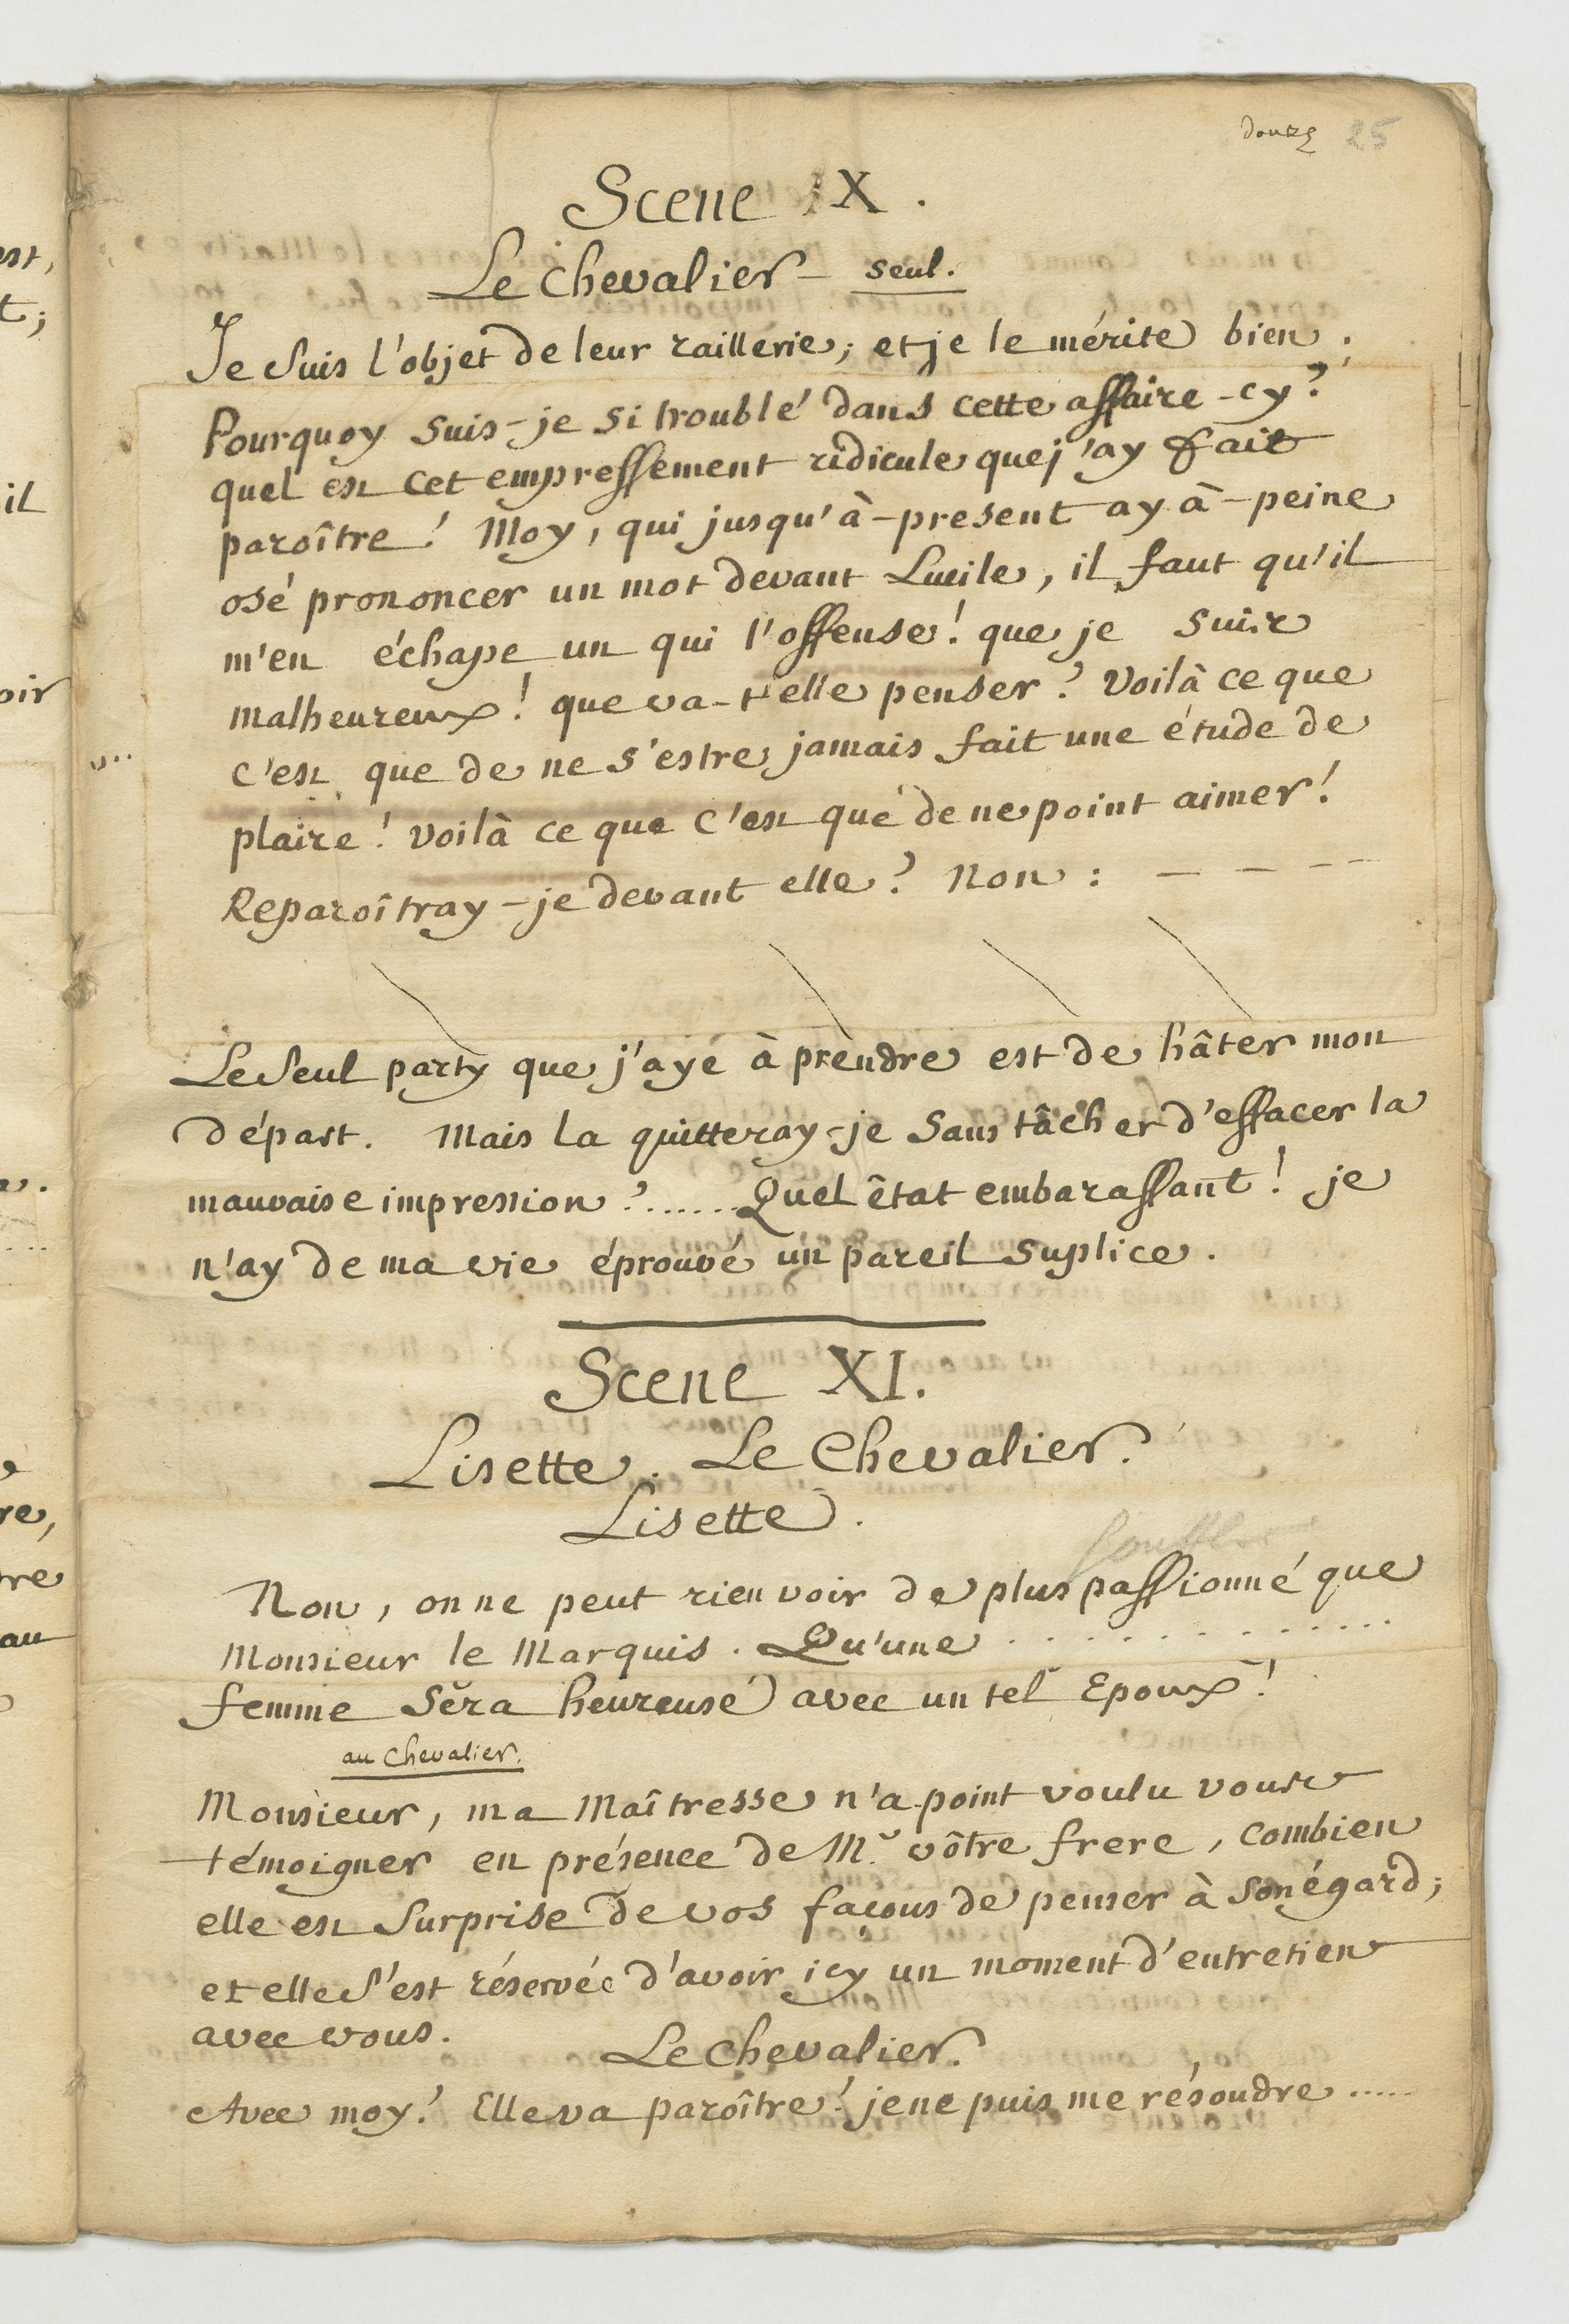 douze 25
Scene X.
Le Chevalier seul.
Je suis l'objet de leur raillerie; et je le mérite bien.
Pourquoy suis-je si troublé dans cette affaire-cy?
quel est cet empressement ridicule que j'ay fait
paroître! Moy, qui jusqu'à-present ay à-peine
osé prononcer un mot devant Lucile, il faut qu'il
m'en échape un qui l'offense! que je suis
malheureux! que va-t-elle penser? Voilà ce que
c'est que de ne s'estre jamais fait une étude de
plaire! Voilà ce que c'est que de ne point aimer!
Reparoîtray-je devant elle? Non: — — — —
Le seul party que j'aye à prendre est de hâter mon
départ. Mais la quitteray-je sans tâcher d'effacer la
mauvaise impression?.......Quel êtat embarassant! je
n'ay de ma vie éprouvé un pareil suplice.
Scene XI.
Lisette. Le Chevalier.
Lisette.
Non, on ne peut rien voir de plus passionné que
Monsieur le Marquis. Qu'une ..............
femme sera heureuse avec un tel Epoux!
au Chevalier.
Monsieur, ma Maîtresse n'a point voulu vous
témoigner en présence de Mr. vôtre frere, combien
elle est surprise de vos façons de penser à son égard;
et elle s'est réservée d'avoir icy un moment d'entretien
avec vous.
Le Chevalier.
Avec moy! Elle va paroître! je ne puis me résoudre.....